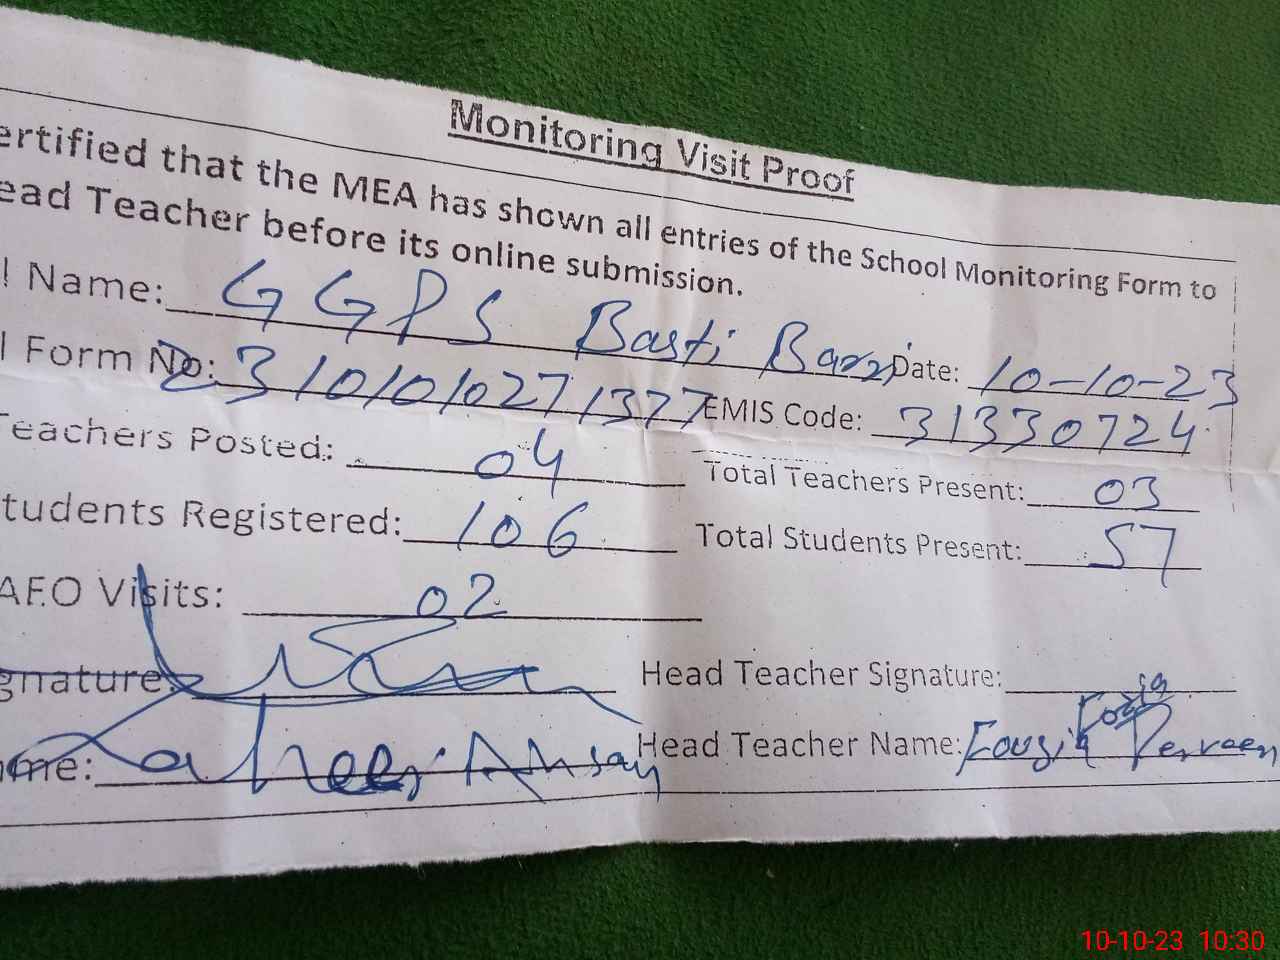 Monitoring Visit Proof
ertified that the MEA has shown all entries of the School Monitoring Form to
ead Teacher before its online submission.
l Name: GGPS Basti Bazzi Date: 10-10-23
l Form No: 23101010271377 EMIS Code: 31330724
Teachers Posted: 04 Total Teachers Present: 03
tudents Registered: 106 Total Students Present: 57
AEO Visits: 02
gnature: Head Teacher Signature: Fouzia
ame: Head Teacher Name: Fouzia Perveen
10-10-23 10:30